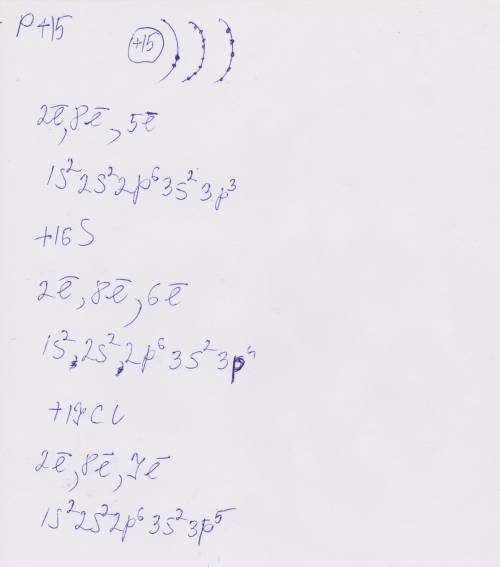 P +15 +15
2ē, 8ē, 5ē
1s² 2s² 2p⁶ 3s² 3p³
+16 S
2ē, 8ē, 6ē
1s², 2s², 2p⁶ 3s² 3p⁴
+17 Cl
2ē, 8ē, 7ē
1s² 2s² 2p⁶ 3s² 3p⁵